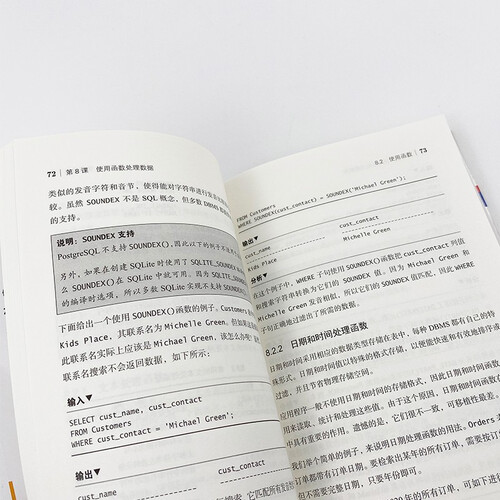 72 第8课 使用函数处理数据
类似的发音字符和音节，使得能对字符串进行发音比较
较。虽然 SOUNDEX 不是 SQL 概念，但多数 DBMS 都
的支持。
说明：SOUNDEX 支持
PostgreSQL 不支持 SOUNDEX()，因此以下的例子不适
另外，如果在创建 SQLite 时使用了 SQLITE_SOUNDEX
么 SOUNDEX()在 SQLite 中就可用。因为 SQLITE_SOUNDEX
的编译时选项，所以多数 SQLite 实现不支持 SOUNDEX
下面给出一个使用 SOUNDEX()函数的例子。Customers 表
Kids Place，其联系名为 Michelle Green。但如果这是
此联系名实际上应该是 Michael Green，该怎么办呢？
联系名搜索不会返回数据，如下所示：
输入▼
SELECT cust_name, cust_contact
FROM Customers
WHERE cust_contact = 'Michael Green';
输出▼
cust_name cust_contact
8.2 使用函数 73
FROM Customers
WHERE SOUNDEX(cust_contact) = SOUNDEX('Michael Green');
输出▼
cust_contact
Kids Place Michelle Green
分析▼
在这个例子中，WHERE 子句使用 SOUNDEX()函数把 cust_contact 列值
和搜索字符串转换为它们的 SOUNDEX 值。因为 Michael Green 和
Michelle Green 发音相似，所以它们的 SOUNDEX 值匹配，因此 WHERE
子句正确地过滤出了所需的数据。
8.2.2 日期和时间处理函数
日期和时间采用相应的数据类型存储在表中，每种 DBMS 都有自己的特
殊形式。日期和时间值以特殊的格式存储，以便能快速和有效地排序或
过滤，并且节省物理存储空间。
应用程序一般不使用日期和时间的存储格式，因此日期和时间函数
用来读取、统计和处理这些值。由于这个原因，日期和时间函数在
中具有重要的作用。遗憾的是，它们很不一致，可移植性最差。
我们举个简单的例子，来说明日期处理函数的用法。Orders
订单都带有订单日期。要检索出某年的所有订单，需要按订
但不需要完整日期，只要年份即可。
年的所有订单，可如下